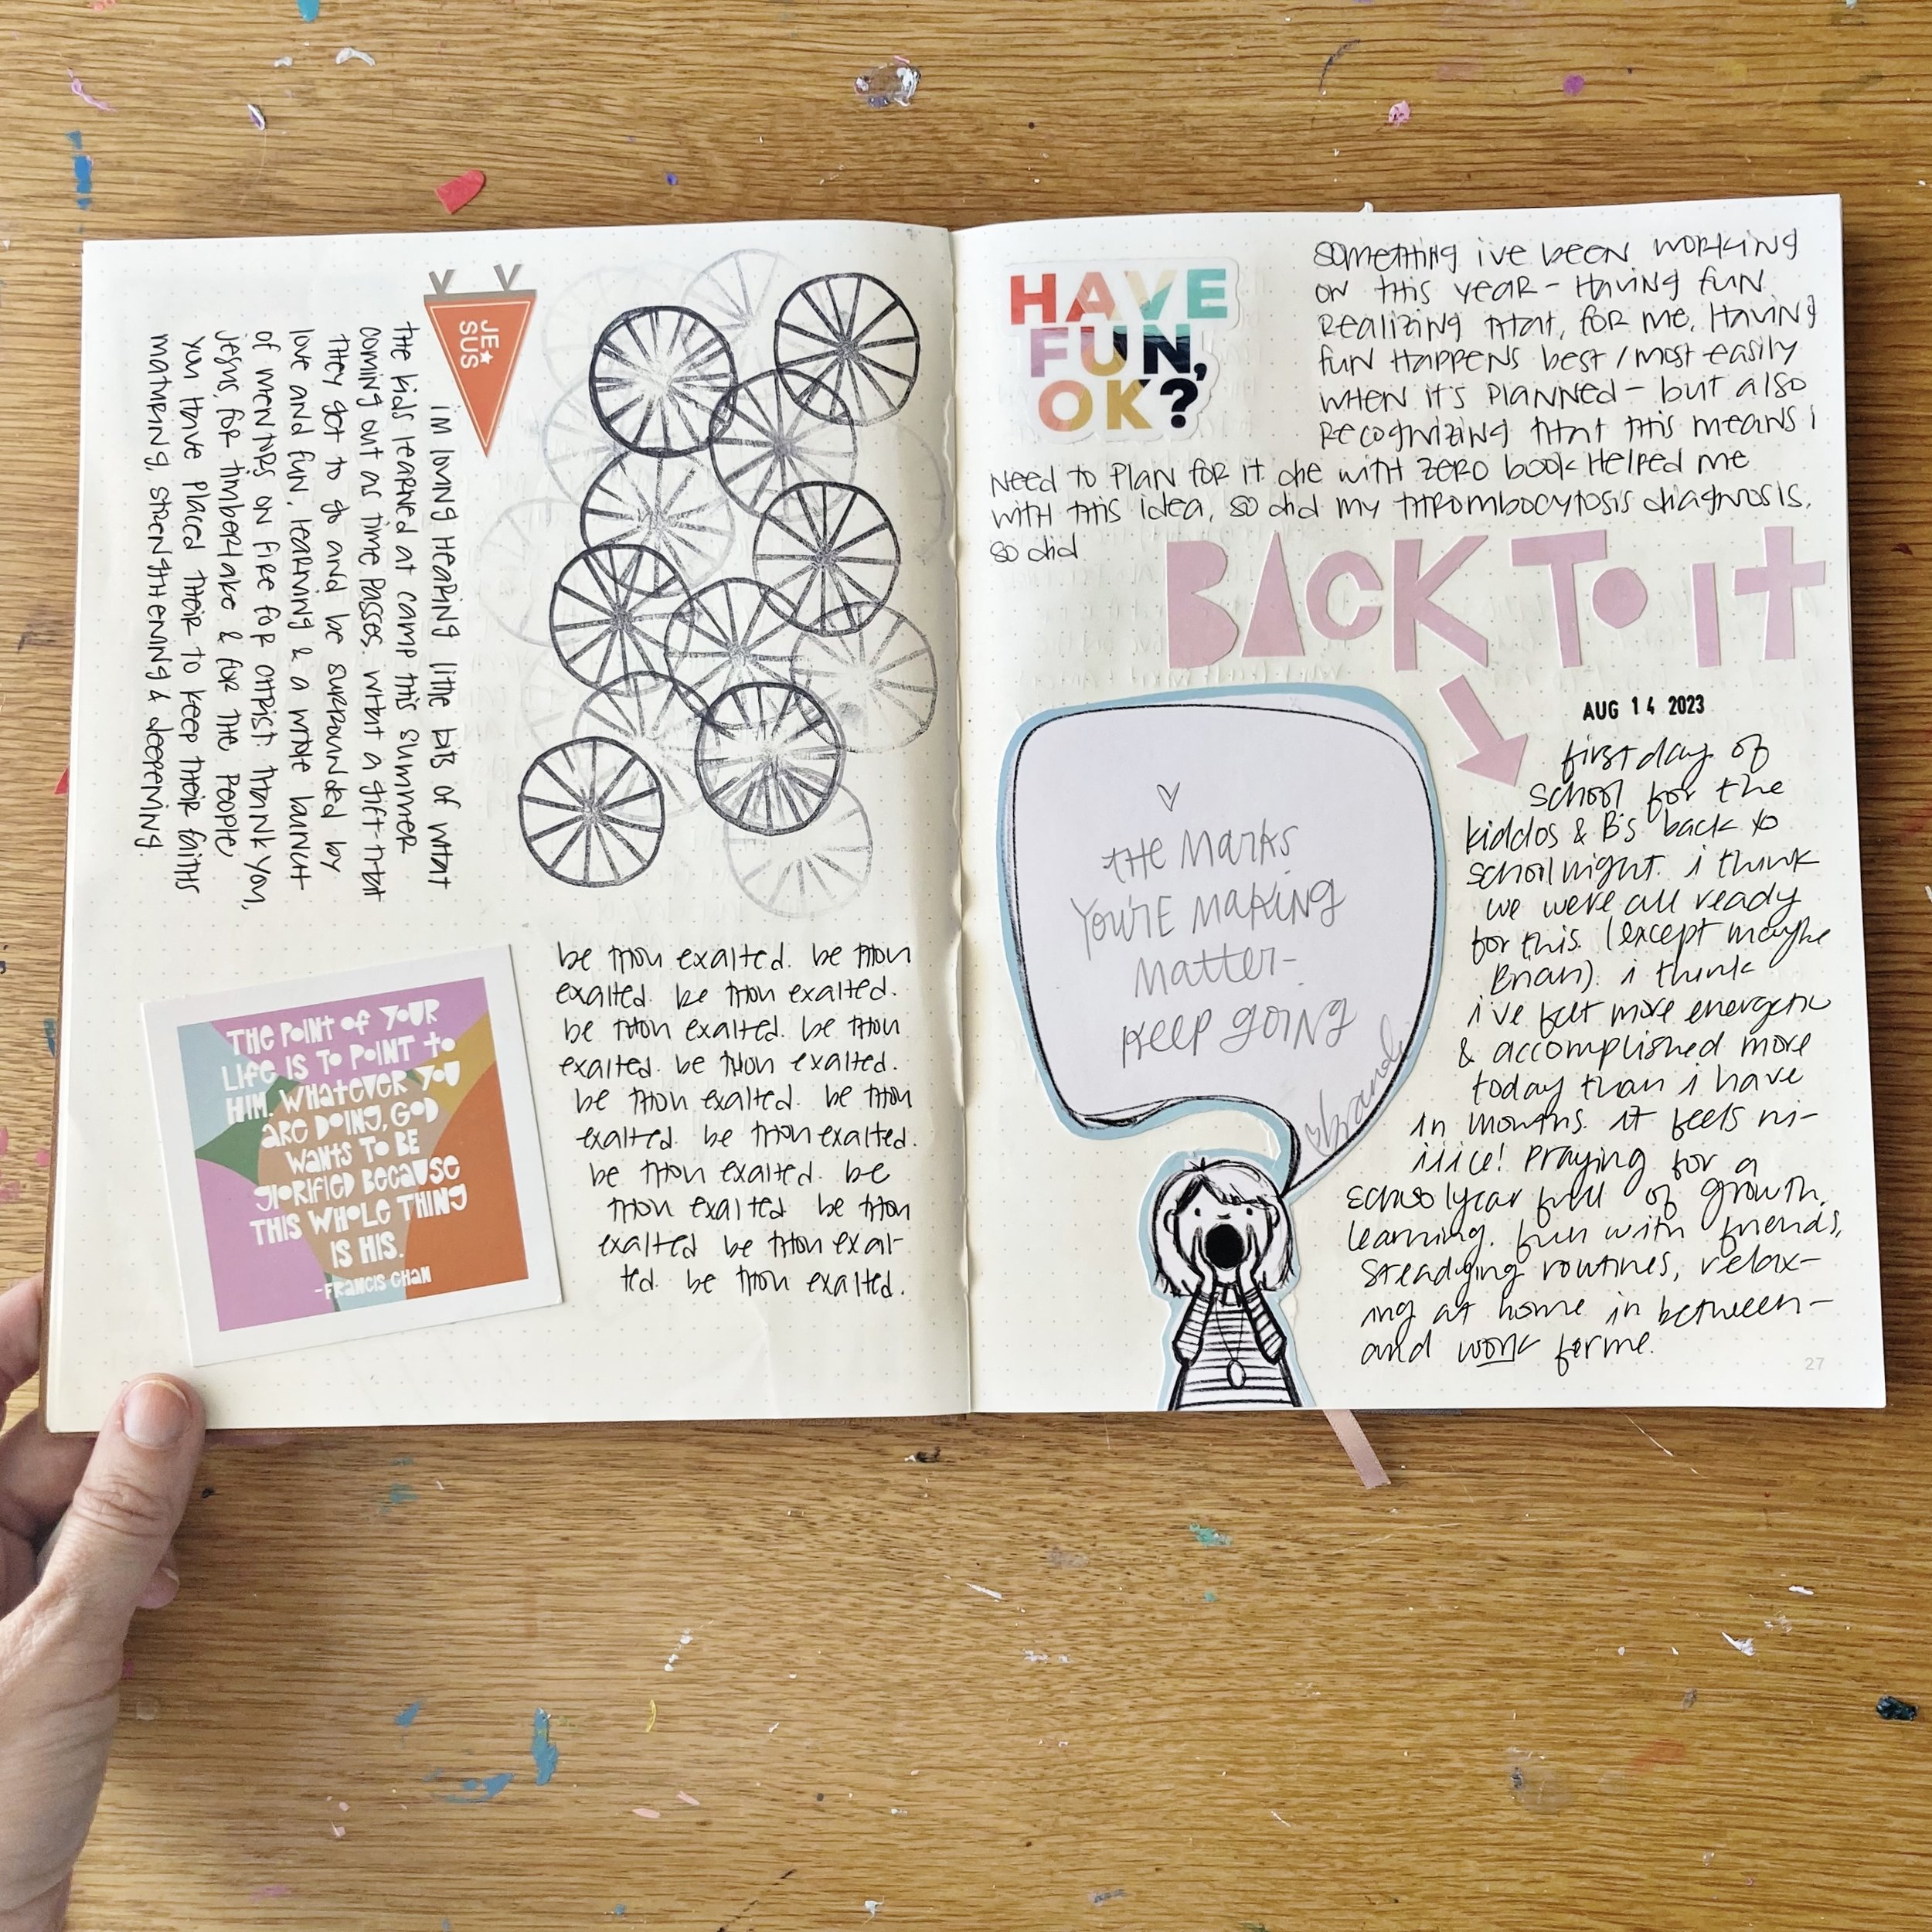 JE★
SUS
I'm loving hearing little bits of what
the kids learned at camp this summer
coming out as time passes. what a gift that
they get to go and be surrounded by
love and fun, learning & a whole bunch
of mentors on fire for Christ. Thank you,
Jesus, for Timberlake & for the people
you have placed their to keep their faiths
maturing, strengthening & deepening.
THE POINT OF YOUR
LIFE IS TO POINT TO
HIM. WHATEVER YOU
ARE DOING, GOD
WANTS TO BE
GLORIFIED BECAUSE
THIS WHOLE THING
IS HIS.
-FRANCIS CHAN
be thou exalted. be thou
exalted. be thou exalted.
be thou exalted. be thou
exalted. be thou exalted.
be thou exalted. be thou
exalted. be thou exalted.
be thou exalted. be
thou exalted be thou
exalted be thou exal-
ted. be thou exalted.
HAVE
FUN,
OK?
something i've been working
on this year - Having fun
Realizing that, for me, Having
fun Happens best / most easily
when it's planned - but also
recognizing that this means i
need to plan for it. die with zero book Helped me
with this idea, so did my thrombocytosis diagnosis.
so did
BACK TO IT
AUG 14 2023
first day of
school for the
kiddos & B's back to
school night. i think
we were all ready
for this. (except maybe
Brian). i think
i've felt more energetic
& accomplished more
today than i have
in months. it feels ni-
iiice! Praying for a
school year full of growth,
learning, fun with friends,
steadying routines, relax-
ing at home in between-
and work for me.
THE MARKS
YOU'RE MAKING
MATTER-
KEEP GOING
brandi
27